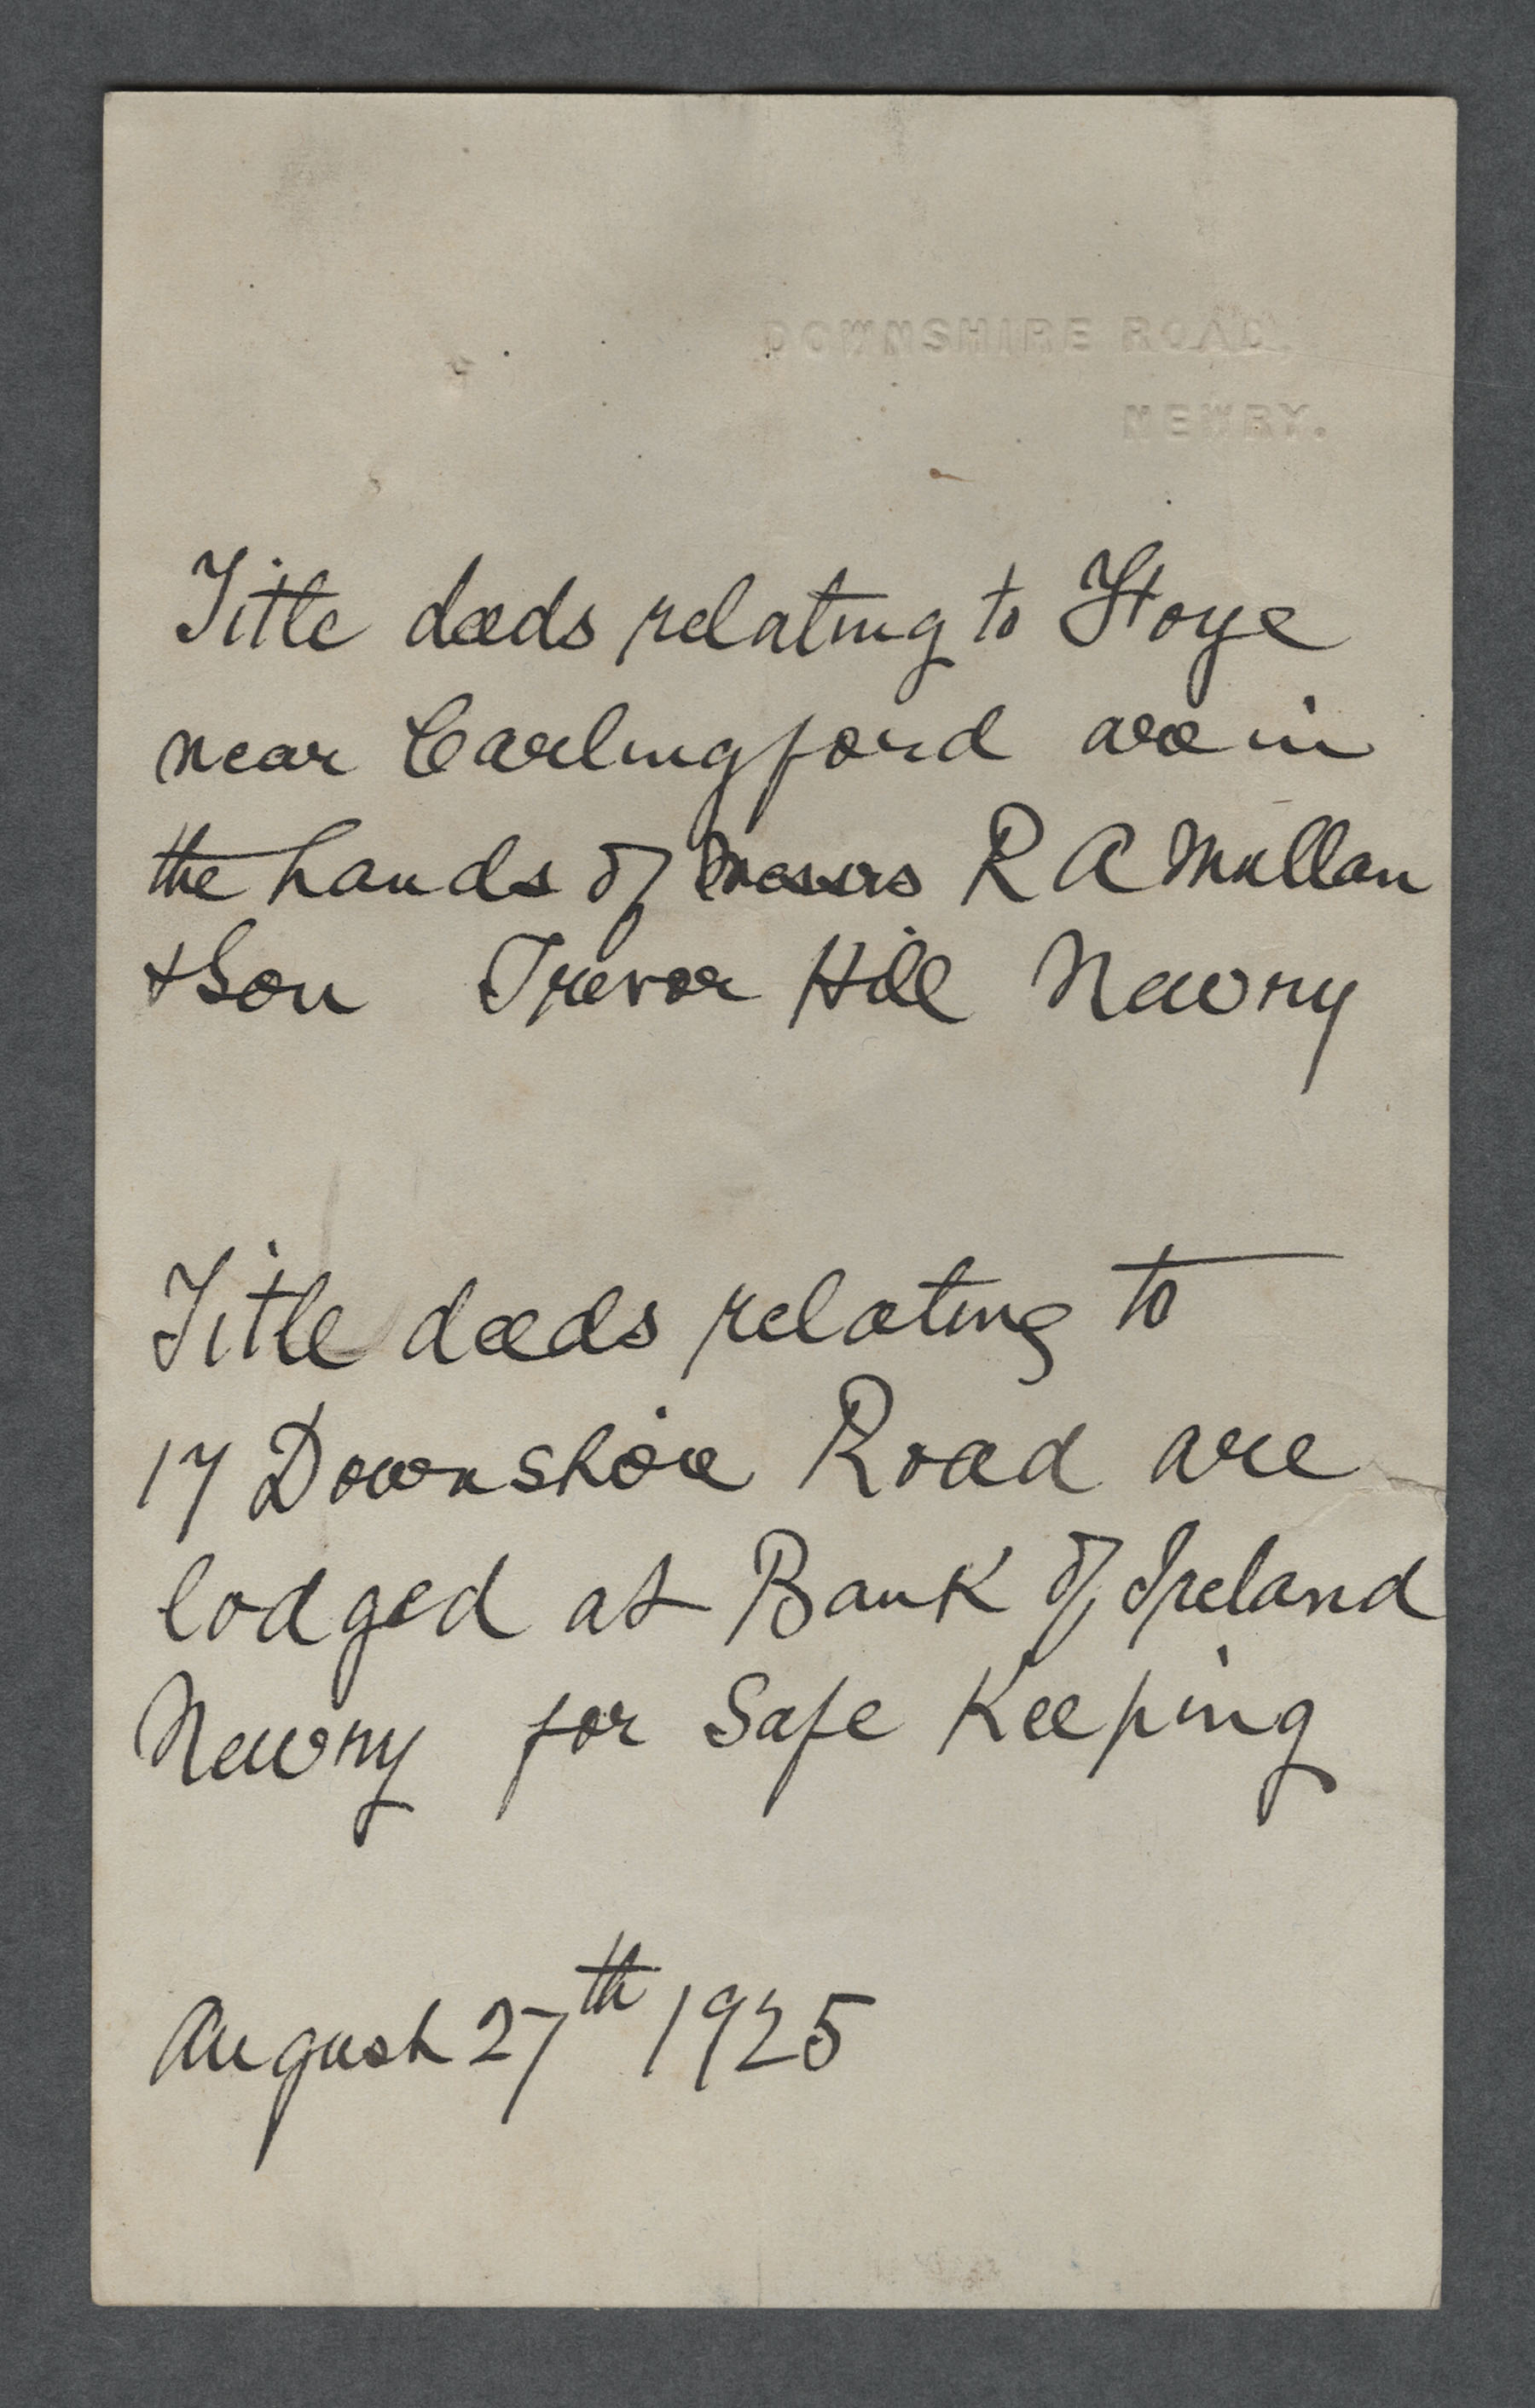 DOWNSHIRE ROAD,
NEWRY.
Title deeds relating to
near Carlingford are in
the hands of Messrs R A Mullan
& Son Trevor Hill Newry
Title deeds relating to
17 Downshire Road are
lodged at Bank of Ireland
Newry for Safe Keeping
August 27th 1925